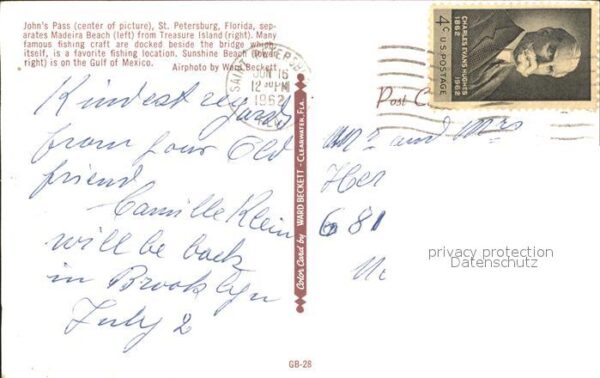 John's Pass (center of picture), St. Petersburg, Florida, sep-
arates Madeira Beach (left) from Treasure Island (right). Many
famous fishing craft are docked beside the bridge which
itself, is a favorite fishing location. Sunshine Beach (lower
right) is on the Gulf of Mexico.
Airphoto by Ward Beckett.
SAINT PETERSBURG
JUN 16
12 PM
1962
4¢ U.S. POSTAGE
CHARLES EVANS HUGHES
1862 1962
Post C
Kindest regards
from your Old
friend
Camille Klein
will be back
in Brooklyn
July 2
Color Card by WARD BECKETT - CLEARWATER, FLA.
Mr and Mrs
Her
681
privacy protection
Datenschutz
GB-28